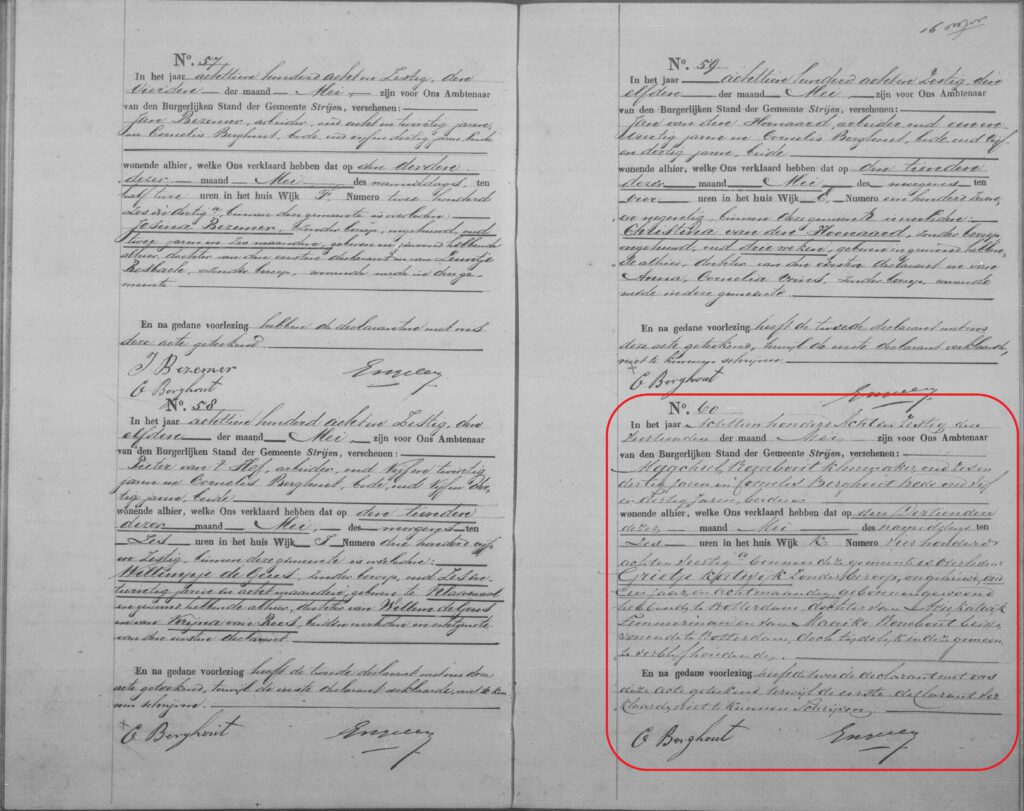 16
No. 57
In het jaar achttien honderd acht en Zestig, den
vierden der maand Mei zijn voor Ons Ambtenaar
van den Burgerlijken Stand der Gemeente Strijen, verschenen:
Jan Bezemer, arbeider, oud acht en twintig jaren,
en Cornelis Berghout, oud vijf en dertig jaren, beide
wonende alhier, welke Ons verklaard hebben dat op den derden
dezer maand Mei des namiddags ten
half twee uren in het huis Wijk F. Numero twee honderd
Zes en dertig a binnen deze gemeente is overleden:
Josina Bezemer, zonder beroep, ongehuwd, oud
twee jaren en Zes maanden, geboren en gewoond hebbende
alhier, dochter van den eersten declarant en van Leentje
zonder beroep, wonende mede in deze ge-
meente
En na gedane voorlezing hebben de declaranten met ons
deze acte geteekend.
J Bezemer
C Berghout
No. 58
In het jaar achttien honderd acht en Zestig, den
elfden der maand Mei zijn voor Ons Ambtenaar
van den Burgerlijken Stand der Gemeente Strijen, verschenen:
Pieter van 't Hof, arbeider, oud vijf en twintig
jaren en Cornelis Berghout, oud vijf en der-
tig jaren, beide
wonende alhier, welke Ons verklaard hebben dat op den tienden
dezer maand Mei des morgens ten
Zes uren in het huis Wijk Numero drie honderd vijf
en Zestig, binnen deze gemeente is overleden:
Willempje de Geus, zonder beroep, oud Zes en
twintig jaren en acht maanden, geboren te Klaaswaal
en gewoond hebbende alhier, dochter van Willem de Geus
en van Rees, beiden overleden en echtgenote
van den eersten declarant
En na gedane voorlezing heeft de tweede declarant met ons deze
acte geteekend, terwijl de eerste declarant verklaarde, niet te kun-
nen schrijven.
C Berghout
No. 59
In het jaar achttien honderd acht en Zestig, den
elfden der maand Mei zijn voor Ons Ambtenaar
van den Burgerlijken Stand der Gemeente Strijen, verschenen:
Jan van den Hoonaard, arbeider, oud een en
veertig jaren en Cornelis Berghout, oud vijf
en dertig jaren, beide
wonende alhier, welke Ons verklaard hebben dat op den tienden
dezer maand Mei des morgens ten
vier uren in het huis Wijk E Numero een honderd twee
en negentig, binnen deze gemeente is overleden:
Christina van den Hoonaard, zonder beroep
ongehuwd, oud drie weken, geboren en gewoond hebben-
de alhier, dochter van den eersten declarant en van
Anna Cornelia zonder beroep, wonende
mede in deze gemeente
En na gedane voorlezing heeft de tweede declarant met ons
deze acte geteekend, terwijl de eerste declarant verklaarde,
niet te kunnen schrijven.
C Berghout
No. 60
In het jaar Achttien honderd Acht en Zestig den
Veertienden der maand Mei zijn voor Ons Ambtenaar
van den Burgerlijken Stand der Gemeente Strijen, verschenen:
Magchiel Kleermaker, oud Zes en
dertig Jaren en Cornelis Berghout oud vijf
en dertig Jaren, beiden
wonende alhier, welke Ons verklaard hebben dat op den Veertienden
dezer maand Mei des ten
Zes uren in het huis Wijk K Numero Vier honderd
acht en Veertig a binnen deze gemeente is overleden
Grietje Katwijk Zonder beroep, ongehuwd, oud
Een jaar en acht maanden, geboren en gewoond
hebbende te Rotterdam, dochter van Arie Katwijk
Timmerman en van Maaijke beide
wonende te Rotterdam, doch tijdelijk in deze gemeen-
te verblijf houdende.
En na gedane voorlezing heeft de tweede declarant met ons
deze acte geteekend terwijl de eerste declarant ver-
klaarde niet te kunnen Schrijven.
C Berghout